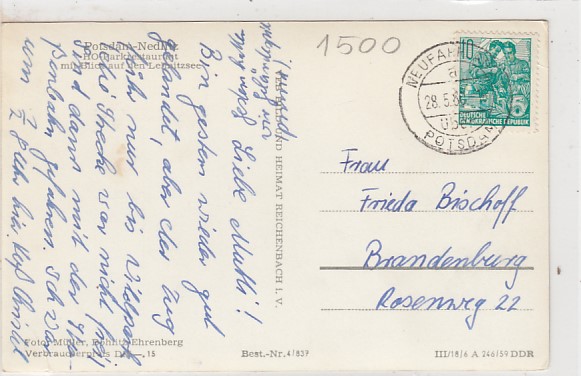 Potsdam-Nedlitz
HO-Parkrestaurant
mit Blick auf den Lehnitzsee
1500
NEUFAHRLAND
28.5.
POTSDAM
10
5
DEUTSCHE
DEMOKRATISCHE REPUBLIK
VERLAG BILD UND HEIMAT REICHENBACH I. V.
Frau
Frieda Bischoff
Brandenburg
Rosenweg 22
Liebe Mutti!
Bin gestern wieder gut
gelandet, aber der Zug
fuhr nur bis Wildpark
die Strecke war nicht frei,
sind dann mit der Stra-
ßenbahn gefahren ich war
um ½ Uhr hier.
Foto: Müller, Böhlitz-Ehrenberg
Verbraucherpreis DM —,15
Best.-Nr. 4/837
III/18/6 A 246/59 DDR